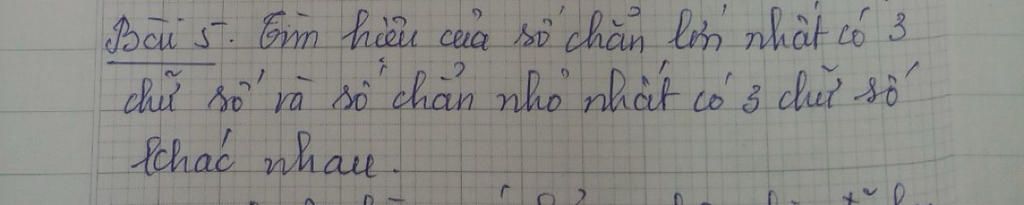 Bài 5. Tìm hiệu của số chẵn lớn nhất có 3
chữ số và số chẵn nhỏ nhất có 3 chữ số
khác nhau.